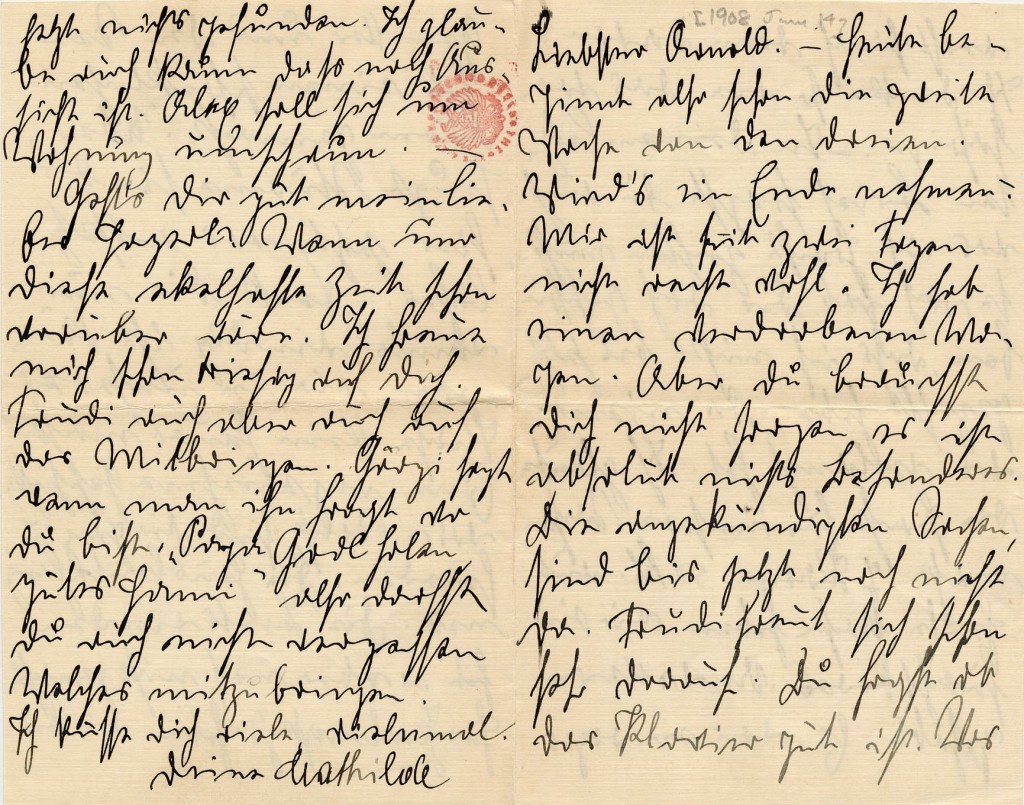 jetzt nichts gefunden. Ich glau-
be auch kaum dass noch Aus-
sicht ist. Alex soll sich um
Wohnung umschaun. —
Gehts Dir gut mein lie-
ber Wenn nur
diese ekelhafte Zeit schon
vorüber wäre. Ich freue
mich schon riesig auf Dich.
Trudi auch aber auch auf
das Mitbringen. Görgi sagt
wenn man ihn fragt wo
du bist: „Papa Godl holen,
gutes Hami" also darfst
du auch nicht vergessen
Welches mitzubringen.
Ich küsse dich viele, vielemal.
Deine Mathilde
[1908 June 14?
Liebster Arnold. – Heute be-
ginnt also schon die zweite
Woche von den dreien.
Wird's ein Ende nehmen?
Mir ist seit zwei Tagen
nicht recht wohl. Ich hab
einen verdorbenen Ma-
gen. Aber du brauchst
Dich nicht sorgen es ist
absolut nichts besonderes.
Die angekündigten Sachen,
sind bis jetzt noch nicht
da. Trudi freut sich schon
sehr darauf. Du fragst ob
das Klavier gut ist. Was